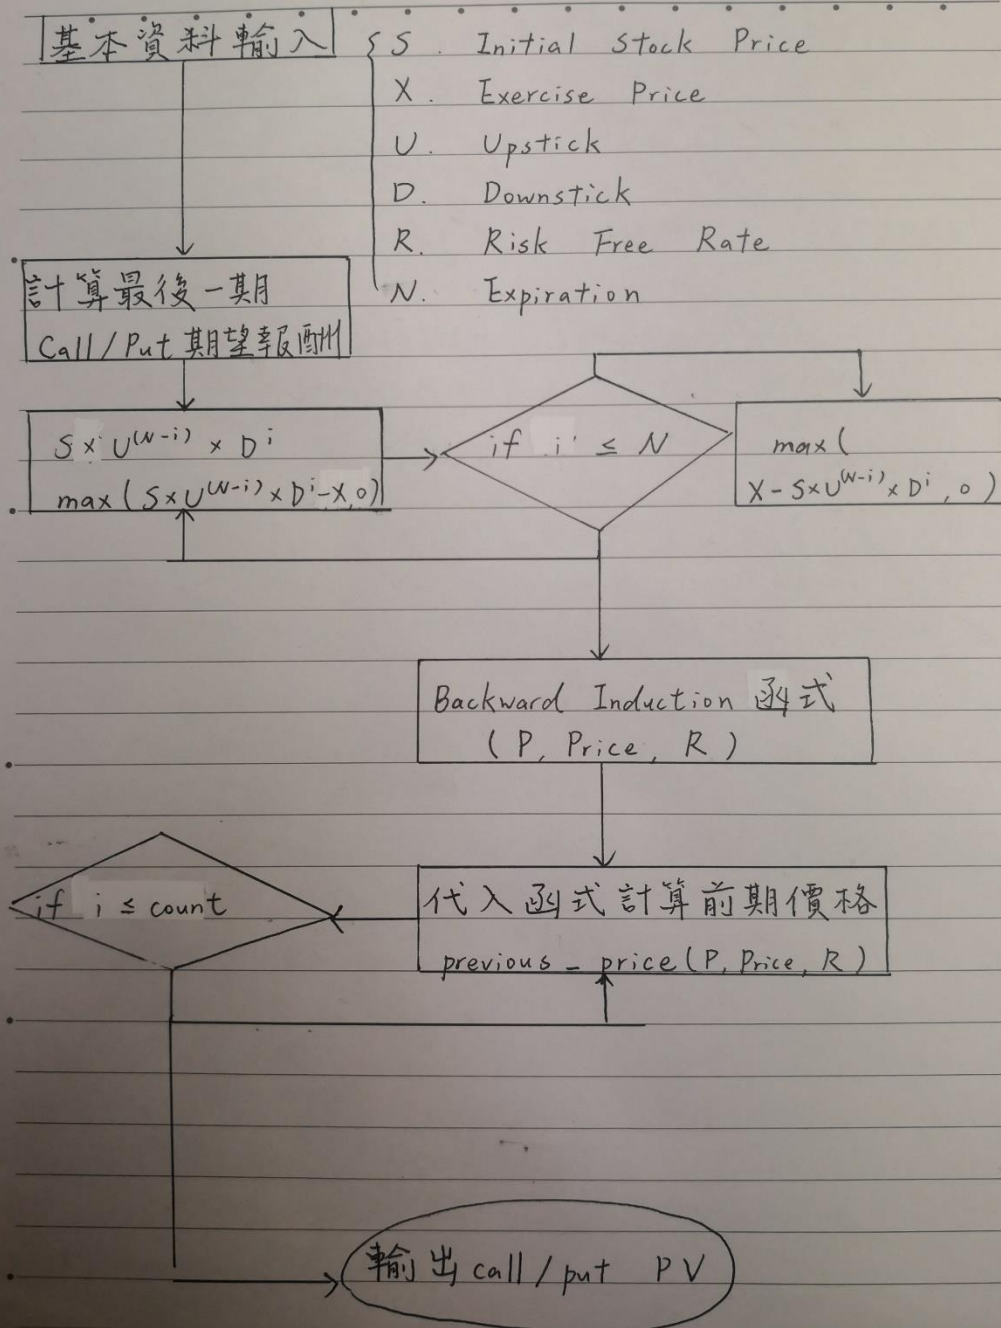 基本資料輸入
S. Initial Stock Price
X. Exercise Price
U. Upstick
D. Downstick
R. Risk Free Rate
N. Expiration
計算最後一期
Call/Put期望報酬
S×U^(N-i) × D^i
max(S×U^(N-i)×D^i-X,0)
if i ≤ N
max(
X-S×U^(N-i)×D^i,0)
Backward Induction 函式
(P, Price, R)
代入函式計算前期價格
previous_price(P, Price, R)
if i ≤ count
輸出call/put PV